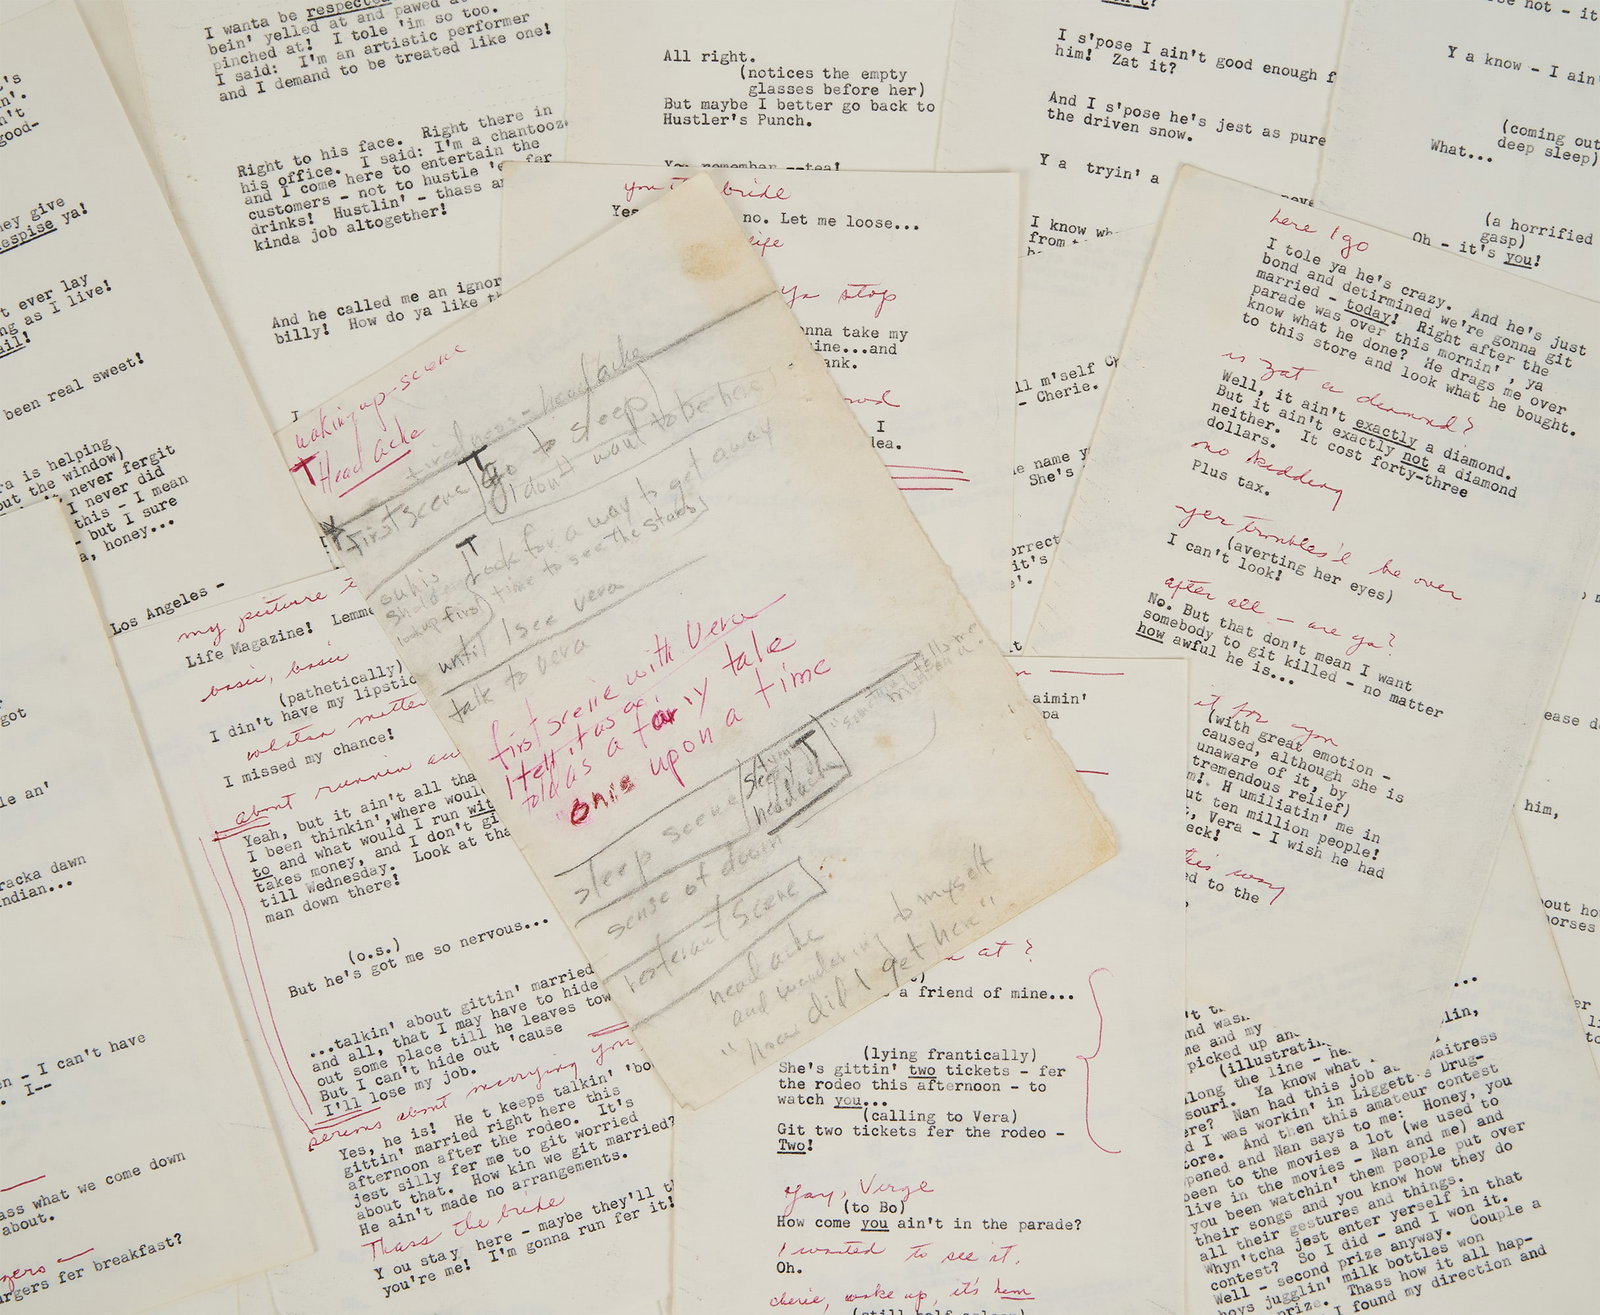 I wanta be respected
bein' yelled at and pawed at
pinched at! I tole 'im so too.
I said: I'm an artistic performer
and I demand to be treated like one!
Right to his face. Right there in
his office. I said: I'm a chantooz
and I come here to entertain the
customers - not to hustle 'em fer
drinks! Hustlin' - thass a
kinda job altogether!
And he called me an ignor
billy! How do ya like th
I
All right.
(notices the empty
glasses before her)
But maybe I better go back to
Hustler's Punch.
You remember --tea!
I s'pose I ain't good enough f
him! Zat it?
And I s'pose he's jest as pure
the driven snow.
Y a tryin' a
I know wh
from
ll m'self Ch
- Cherie.
e name y
She's
orrect
it's
Y a know - I ain'
(coming out
deep sleep)
What...
(a horrified
gasp)
Oh - it's you!
good-
hey give
espise ya!
t ever lay
ng as I live!
ail!
been real sweet!
ra is helping
out the window)
never fergit
I never did
this - I mean
- but I sure
a, honey...
you the bride
Yes no. Let me loose...
ya stop
onna take my
ine...and
ank.
I
dea.
waking up-scene
Head ache
tiredness - head ache
first scene go to sleep
I don't want to be here
look for a way to get away
time to see the stars
look up first
until I see vera
talk to vera
first scene with Vera
I tell it as a fairy tale
told as a
once upon a time
sleep scene
sleepy
headache
sense of down
resterant scene
head ache
and wondering to myself
"how did I get here"
here I go
I tole ya he's crazy. And he's just
bond and detirmined we're gonna git
married - today! Right after the
parade was over this mornin', ya
know what he done? He drags me over
to this store and look what he bought.
is zat a diamond?
Well, it ain't exactly a diamond.
But it ain't exactly not a diamond
neither. It cost forty-three
dollars.
no kidding
Plus tax.
yer troubles'l be over
(averting her eyes)
I can't look!
after all - are ya?
No. But that don't mean I want
somebody to git killed - no matter
how awful he is...
it for you
(with great emotion -
caused, although she is
unaware of it, by
tremendous relief)
m! H umiliatin' me in
ut ten million people!
, Vera - I wish he had
eck!
this way
ed to the
Los Angeles -
my picture
Life Magazine! Lemme
(pathetically)
I din't have my lipstic
whatsa matter
I missed my chance!
about runnin
Yeah, but it ain't all tha
I been thinkin', where woul
to and what would I run wit
takes money, and I don't gi
till Wednesday. Look at tha
man down there!
(o.s.)
But he's got me so nervous...
...talkin' about gittin' married
and all, that I may have to hide
out some place till he leaves tow
But I can't hide out 'cause
I'll lose my job.
serious about marrying you
Yes, he is! He t keeps talkin' 'bo
gittin' married right here this
afternoon after the rodeo. It's
jest silly fer me to git worried
about that. How kin we git married?
He ain't made no arrangements.
Thass the bride
Y ou stay here - maybe they'll t
you're me! I'm gonna run fer it!
got
le an'
racka dawn
ndian...
en - I can't have
. I--
ass what we come down
about.
rgers fer breakfast?
aimin'
pa
at?
a friend of mine...
(lying frantically)
She's gittin' two tickets - fer
the rodeo this afternoon - to
watch you...
(calling to Vera)
Git two tickets fer the rodeo -
Two!
Yay, Virge
(to Bo)
How come you ain't in the parade?
I wanted to see it.
Oh.
cherie, wake up, it's him
(still half asleep)
ease d
him,
out ho
orses
me and my
picked up an
(illustratin
long the line - he
souri. Ya know what
ere? Nan had this job as waitress
d I was workin' in Liggett's Drug-
tore. And then this amateur contest
pened and Nan says to me: Honey, you
been to the movies a lot (we used to
live in the movies - Nan and me) and
you been watchin' them people put over
their songs and you know how they do
all their gestures and things.
Whyn'tcha jest enter yerself in that
contest? So I did - and I won it.
Well - second prize anyway. Couple a
boys jugglin' milk bottles won
prize. Thass how it all hap-
I found my direction and